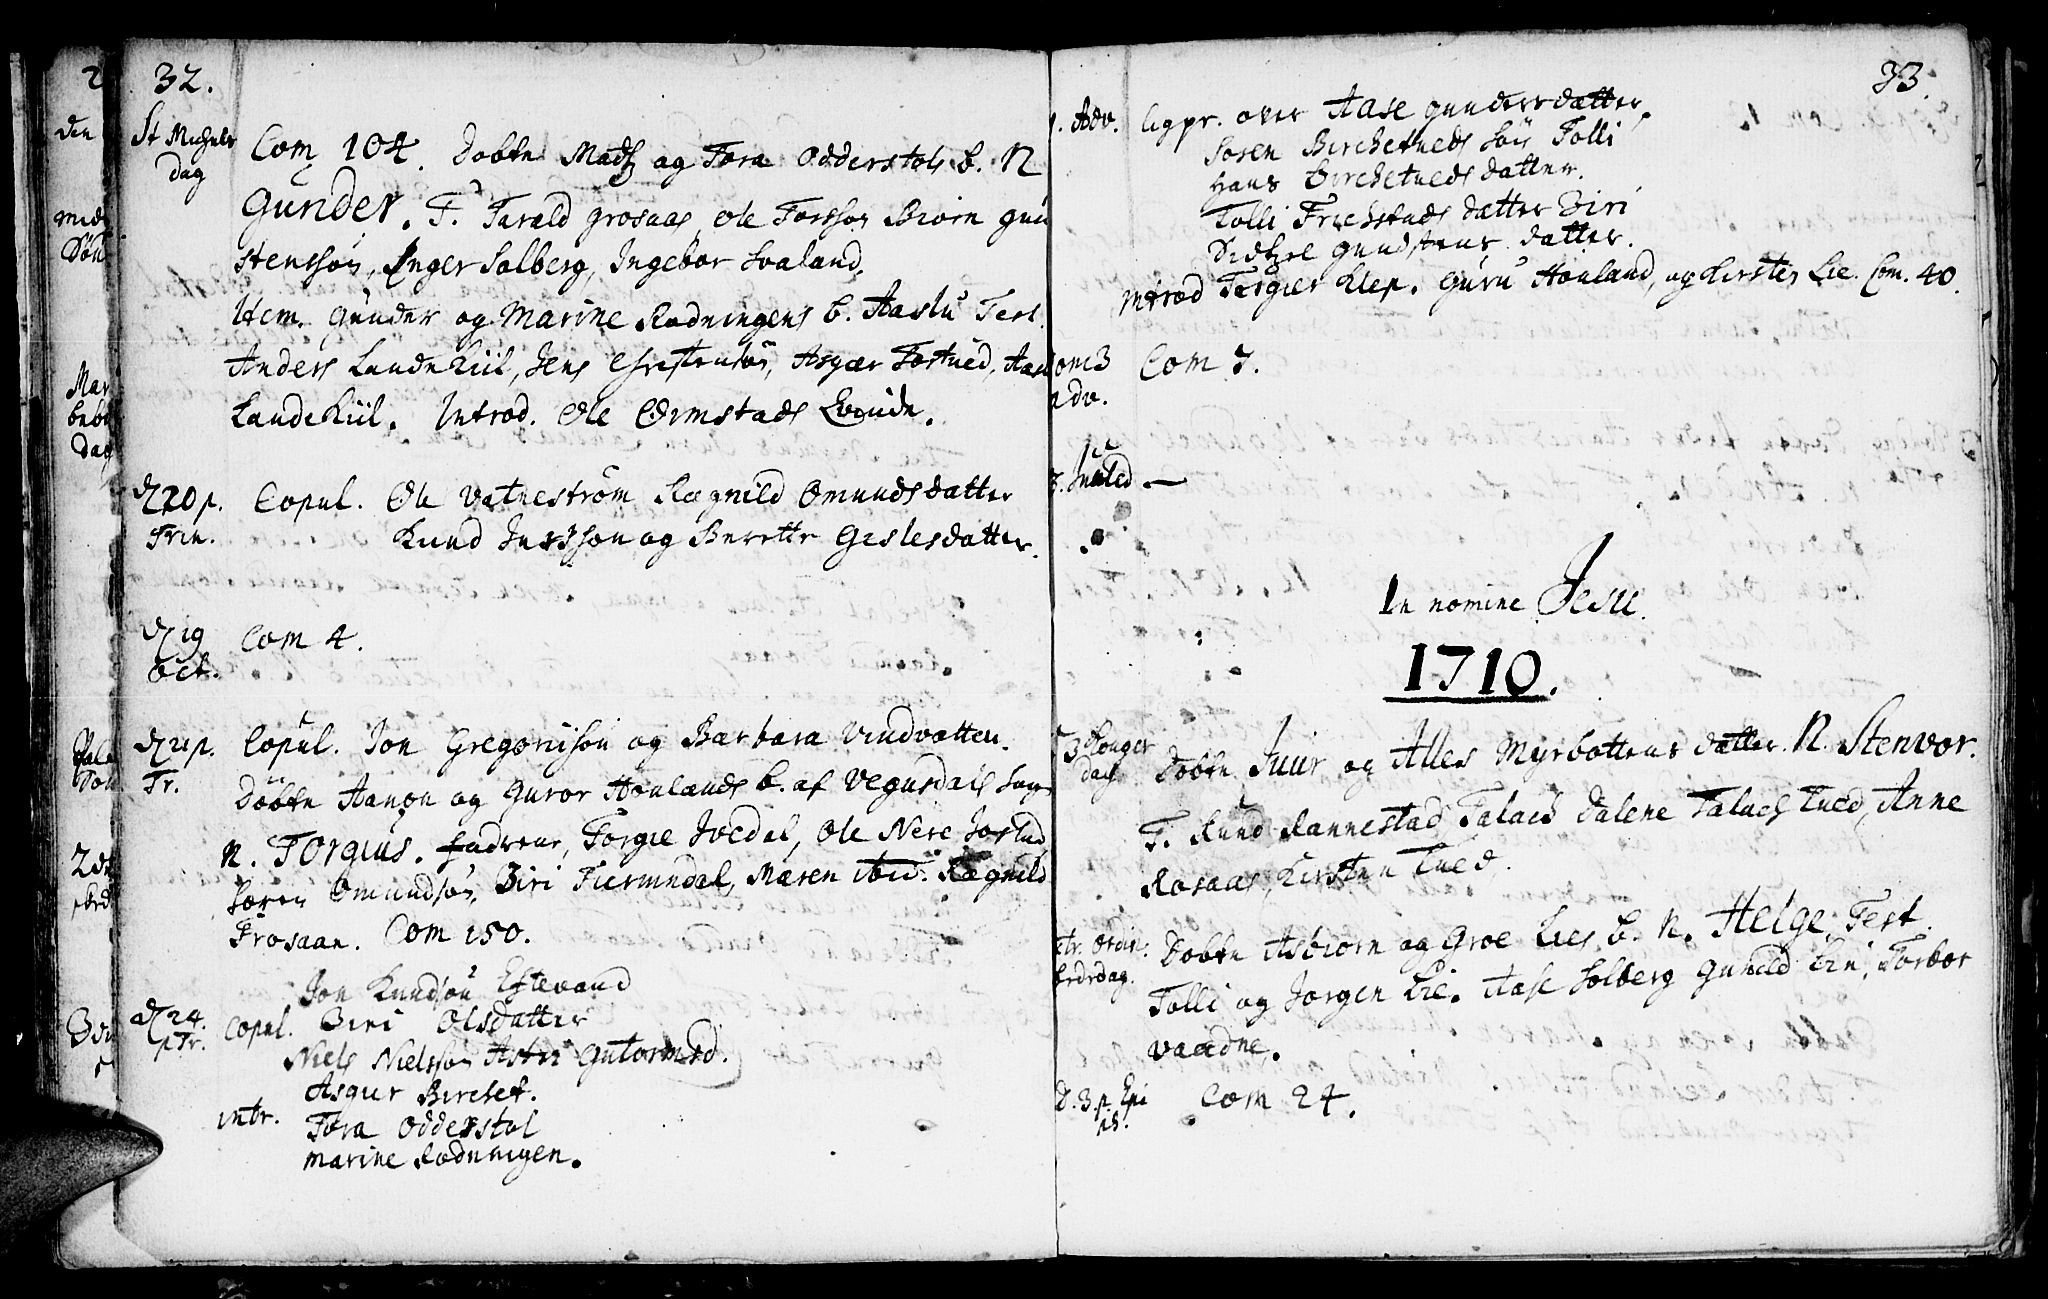 32.
St Michels dag
Com 104. Døbte Madz og Tora Odderstols b. N
Gunder. F. Tarald grosaas, Ole Torsson Biorn gun
stensson, Inger Solberg, Ingebor Svaland,
Item. Gunder og Marine Rødningens b. Aaslu Test.
Anders Landekiil, Jens Christensøn, Asgær Tostued, Aase
Landekiil. Introd. Ole Ormstads Qvinde.
D 20 p. Trin.
Copul. Ole Vatnestrøm Ragnild Omundsdatter
Knud Jensson og Berette Gislesdatter.
D 19 oct.
Com 4.
D 21 p. Tr.
Copul. Jon Gregoriison og Barbara Vindvotten.
Døbte Aanon og Guror Honlands b. af Vegusdals sogn
N. Torgius. Fadrene, Torgie Ivedal, Ole Nere Jortud
Søren Omundsøn, Biri Tiermdal, Maren ibid. Ragnild
Frosaan. Com 150.
D 24. p Tr.
Jon Knudsøn Eftevand
Copul. Biri Olsdatter
Niels Nielsson Astri Gutormsd.
Asgier Birchet.
intr. Tora Odderstol
Marine Rødningen.
33.
1. Adv.
ligpr. over Aase gundersdatter,
Soren Birchetueds søn Tolli
Hans Birchetueds datter.
Tolli Frichstads datter Biri
Sidzel gundstens datter.
Introd Torgier Klep. Guru Honland, og Kirsten Lie. Com. 40.
Dom 3 adv.
Com 7.
3. Juuled —
In nomine Jesu.
1710.
3 Konger dag
Døbte Juur og Alles Myrbottens datter. N. Stenvor.
F. Knud Rannestad, Talach Dalene Talach Tued, Anne
Rosaas, Kirsten Tued.
Døbte Asbiorn og Groe Lies b. N. Helge, Test.
Tolli og Jørgen Lie. Aase Solberg Gunild Lie, Torbor
vaadne.
D. 3. p. Epi ph.
Com 24.